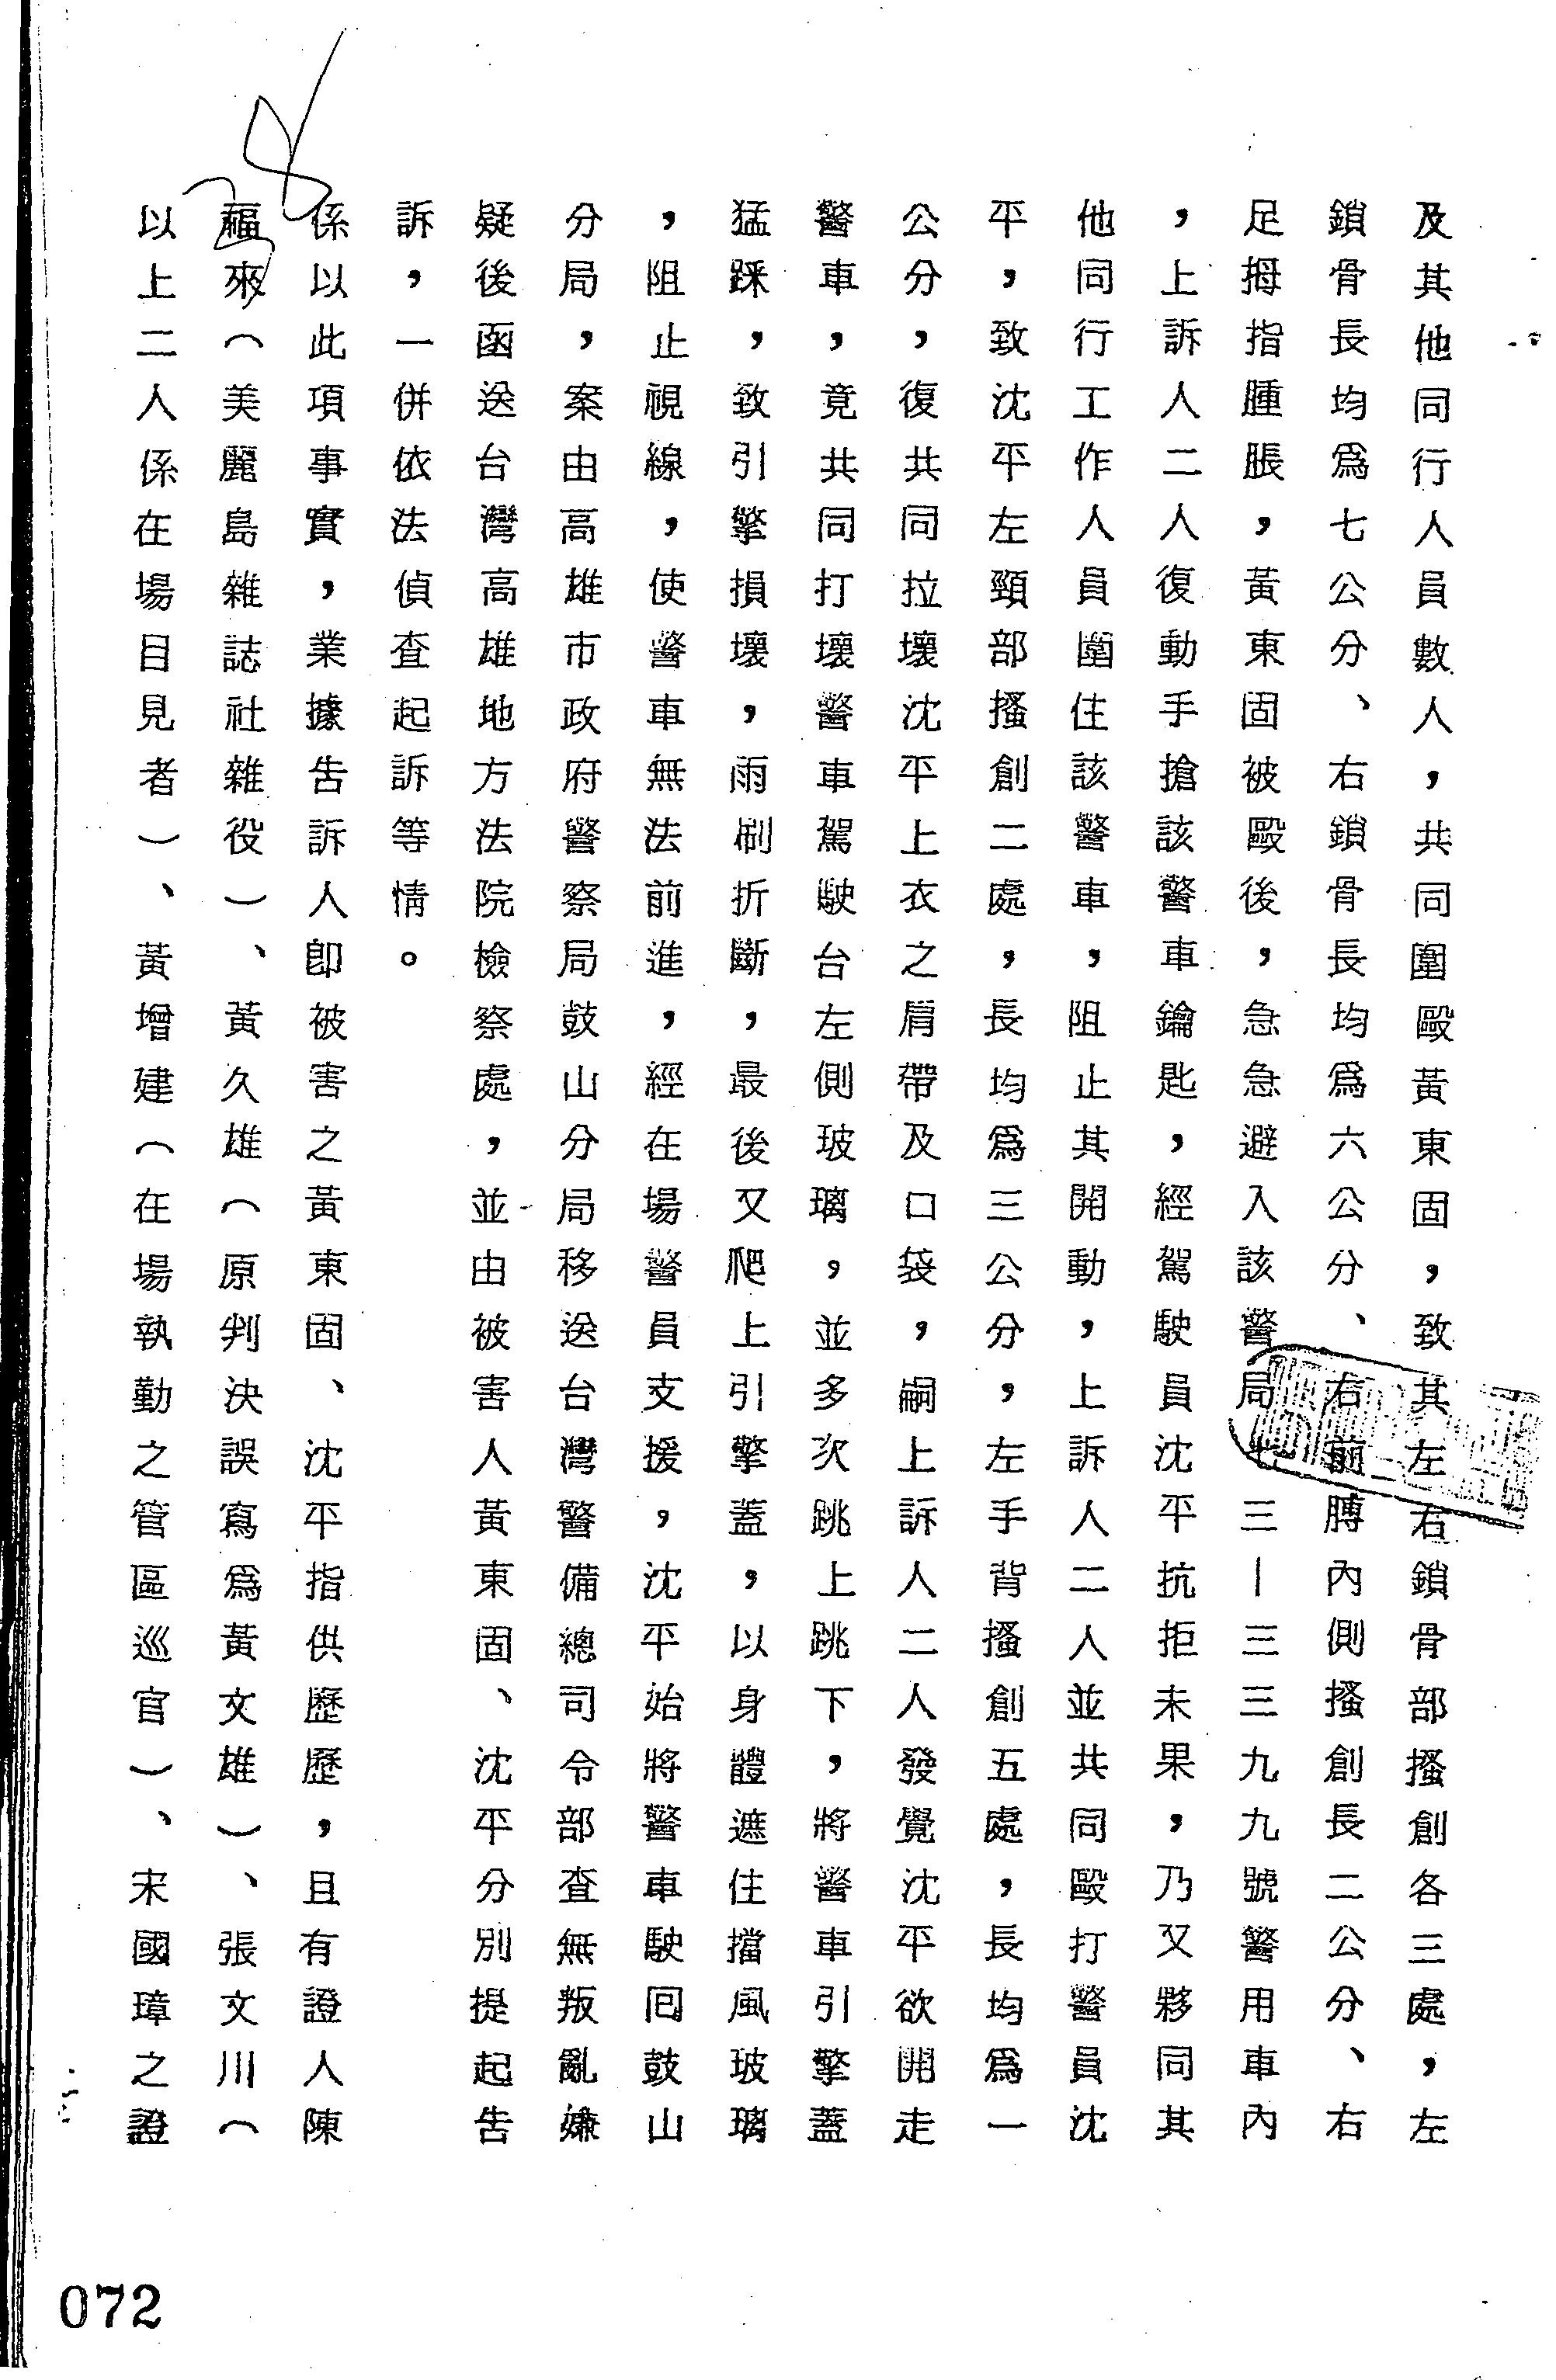 及其他同行人員數人，共同圍毆黃東固，致其左右鎖骨部搔創各三處，左
鎖骨長均爲七公分、右鎖骨長均爲六公分、右前膊內側搔創長二公分、右
足拇指腫脹，黃東固被毆後，急急避入該警局七三—三三九九號警用車內
，上訴人二人復動手搶該警車鑰匙，經駕駛員沈平抗拒未果，乃又夥同其
他同行工作人員圍住該警車，阻止其開動，上訴人二人並共同毆打警員沈
平，致沈平左頸部搔創二處，長均爲三公分，左手背搔創五處，長均爲一
公分，復共同拉壞沈平上衣之肩帶及口袋，嗣上訴人二人發覺沈平欲開走
警車，竟共同打壞警車駕駛台左側玻璃，並多次跳上跳下，將警車引擎蓋
猛踩，致引擎損壞，雨刷折斷，最後又爬上引擎蓋，以身體遮住擋風玻璃
，阻止視線，使警車無法前進，經在場警員支援，沈平始將警車駛回鼓山
分局，案由高雄市政府警察局鼓山分局移送台灣警備總司令部查無叛亂嫌
疑後函送台灣高雄地方法院檢察處，並由被害人黃東固、沈平分別提起告
訴，一併依法偵查起訴等情。
係以此項事實，業據告訴人卽被害之黃東固、沈平指供歷歷，且有證人陳
福來（美麗島雜誌社雜役）、黃久雄（原判決誤寫爲黃文雄）、張文川（
以上二人係在場目見者）、黃增建（在場執勤之管區巡官）、宋國璋之證
072